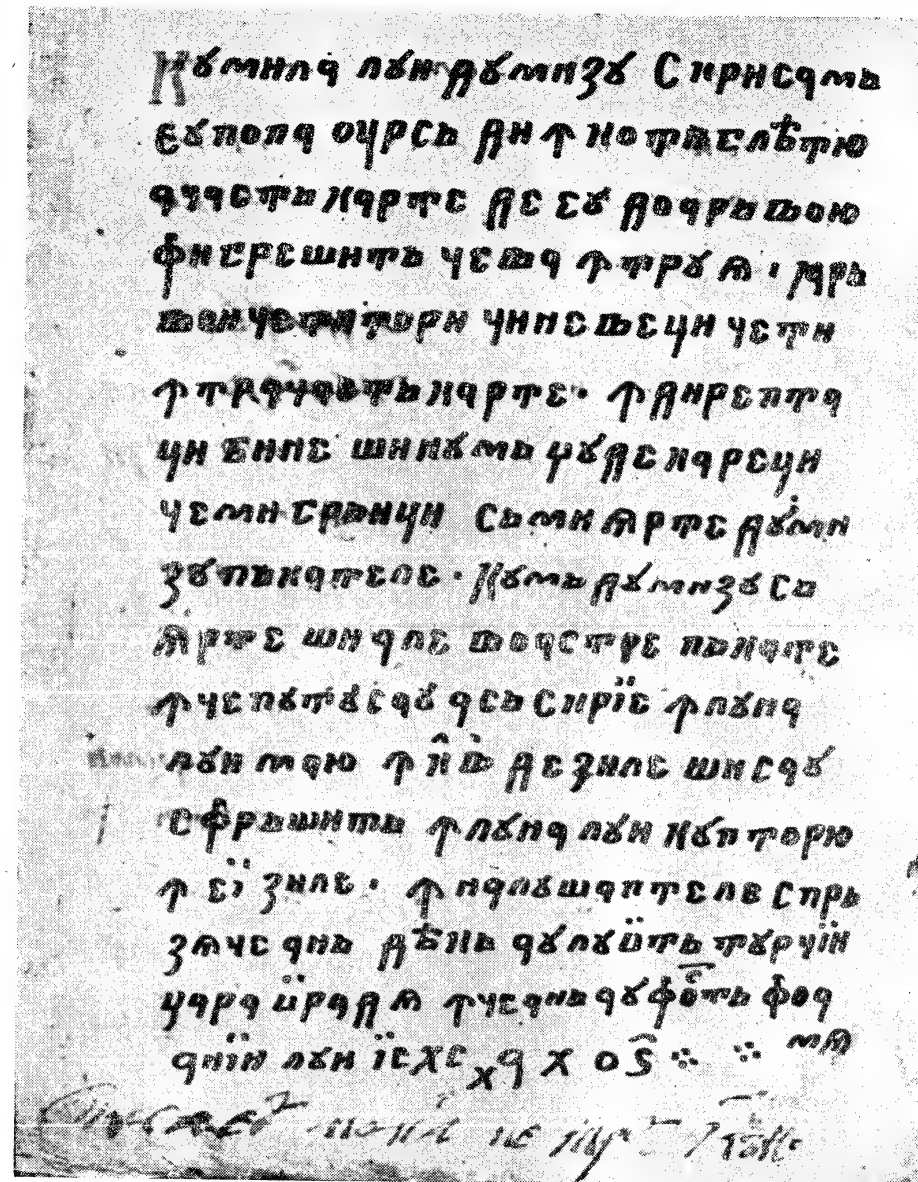 Кꙋмила лꙋи дꙋмнꙁꙋ Скрисамь
єꙋ попа оурсь дин ꙟ Котигєлѣтю
ачасть карте де єꙋ доарьвою
фи грешить чева ꙟтрꙋ ѧ · ꙗрь
вои четиторн чине вєци чети
ꙟтрачасть карте · ꙟдирепта
ци бине ши нꙋмь цꙋде карєци
чеми грьици сьми ѧрте дꙋмни
зꙋ пькателе · Кꙋмь дꙋмнизꙋ сь
ѧрте ши але воастре пькате
ꙟчепꙋтꙋсаꙋ ась Скрїе ꙟлꙋна
лꙋи маю ꙟ к҃в де зиле шисаꙋ
сфрьшить ꙟлꙋна лꙋи кꙋпторю
ꙟ еї зиле · ꙟ калꙋшаптеле спрь
зѧче ань дѣкь аꙋлꙋить тꙋрчїи
цара ѡрадѧ ꙟчеань аꙋ фость фоа
анїи лꙋи їсхс х а х о ѕ мѧ